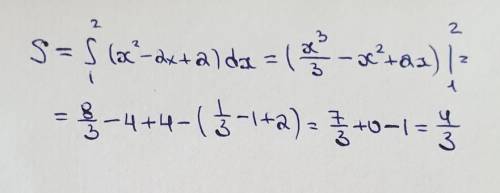 S = ∫₁² (x² - 2x + 2) dx = (x³/3 - x² + 2x) |₁² =
= 8/3 - 4 + 4 - (1/3 - 1 + 2) = 7/3 + 0 - 1 = 4/3